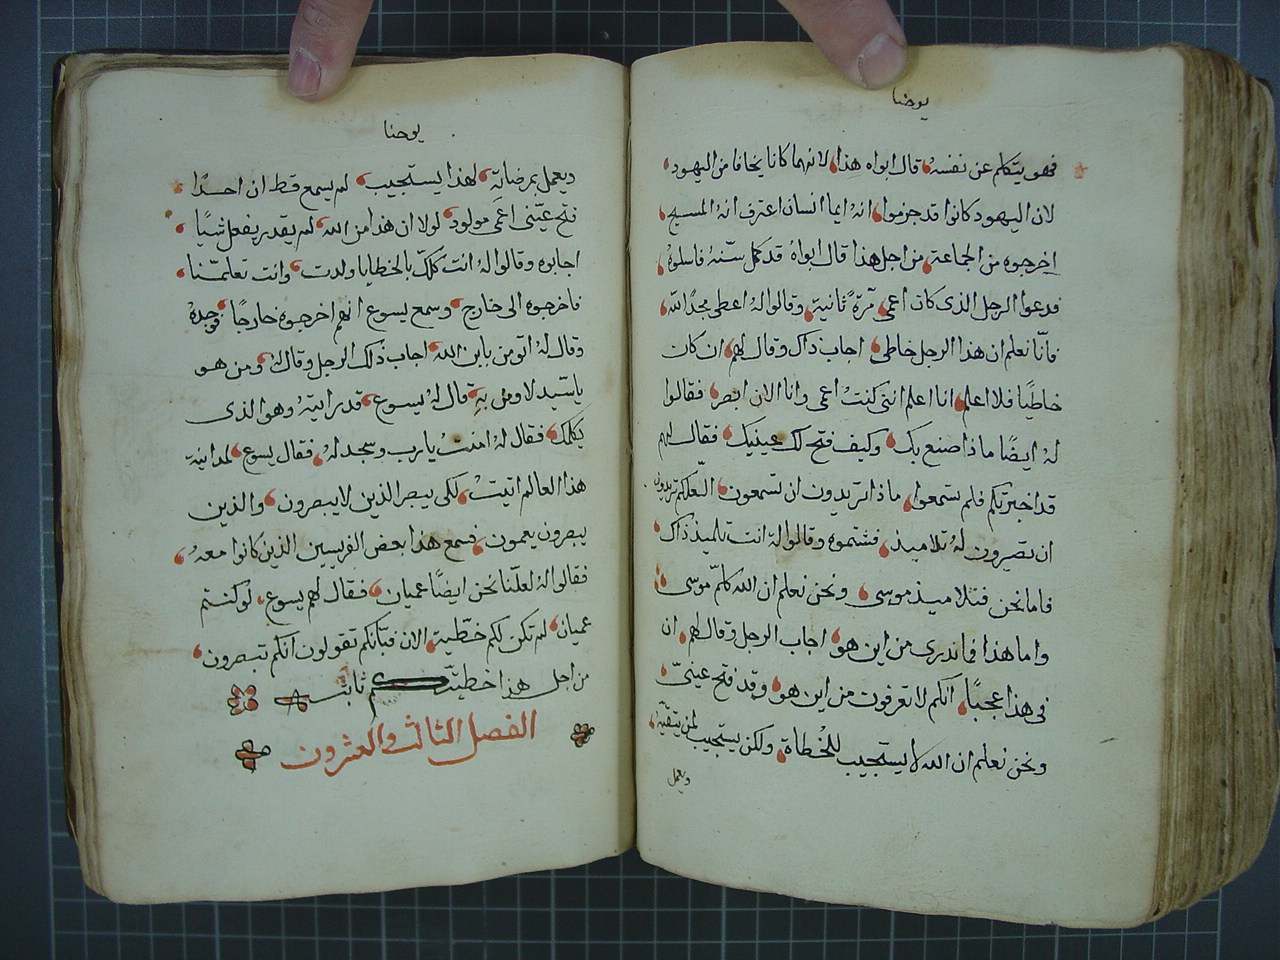 يوحنا
فهو يتكلم عن نفسه قال ابواه هذا لانهما كانا يخافا من اليهود
لان اليهود كانوا قد جزموا انهُ ايما انسان اعترف انهُ المسيح
اخرجوه من الجماعة من اجل هذا قال ابواهُ قد كمل سنّهُ فاسلوهُ
فدعوا الرجل الذى كان اعمى مرّةً ثانية وقالوا لهُ اعطى مجدًا لله
فانّا نعلم ان هذا الرجل خاطى اجاب ذاك وقال لهم ان كان
خاطيًا فلا اعلم انا اعلم اننى كنتُ اعمى وانا الان ابصر فقالوا
لهُ ايضًا ماذا صنع بك وكيف فتح لك عينيك فقال لهم
قد اخبرتكم فلم تسمعوا ماذا تريدون ان تسمعون العلكم تريدون
ان تصيرون لهُ تلاميذ فشتموه وقالوا لهُ انت تلميذ ذاك
فاما نحن فتلاميذ موسى ونحن نعلم ان الله كلم موسى
واما هذا فما ندرى من اين هو اجاب الرجل وقال لهم ان
فى هذا عجبًا انكم لا تعرفون من اين هو وقد فتح عينىّ
ونحن نعلم ان الله لا يستجيب للخطاة ولكن يستجيب لمن يتقيه
ويعمل
يوحنا
ويعمل بمرضاته لهذا يستجيب لم يسمع قط ان احدًا
فتح عينى اعمى مولود لولا ان هذا من الله لم يقدر يفعل شيًا
اجابوه وقالوا لهُ انت كلك بالخطايا ولدت وانت تعلمنا
فاخرجوه الى خارج وسمع يسوع انهم اخرجوه خارجًا فوجدهُ
وقال لهُ اتومن بابن الله اجاب ذلك الرجل وقال ومن هو
ياسيد لاومن به قال لهُ يسوع قد رايتهُ وهو الذى
يكلمك فقال لهُ امنتُ يارب وسجد لهُ فقال يسوع لمداينة
هذا العالم اتيتُ لكى يبصر الذين لا يبصرون والذين
يبصرون يعمون فسمع هذا بعض الفريسين الذين كانوا معهُ
فقالوا لهُ لعلّنا نحن ايضًا عميان فقال لهم يسوع لو كنتم
عميان لم تكن لكم خطية الان فبانكم تقولون انكم تبصرون
من اجل هذا خطيتكم ثابته
الفصل الثالث والعشرون